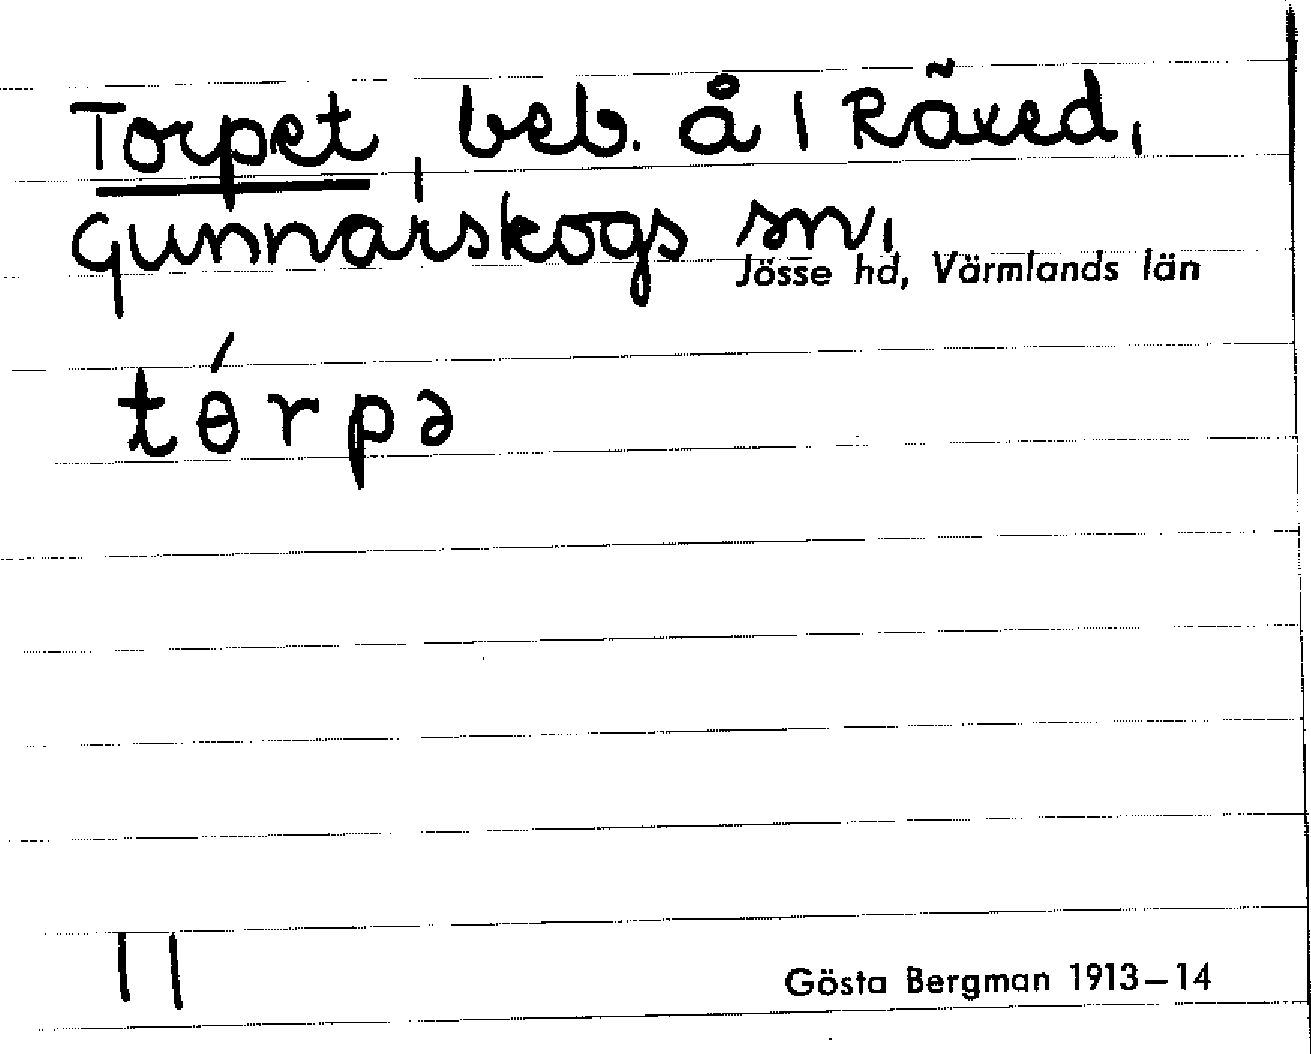 Torpet, beb. å 1 Räxed,
Gunnarskogs sn,
Jösse hd, Värmlands län
tɵ́rpə
11
Gösta Bergman 1913–14